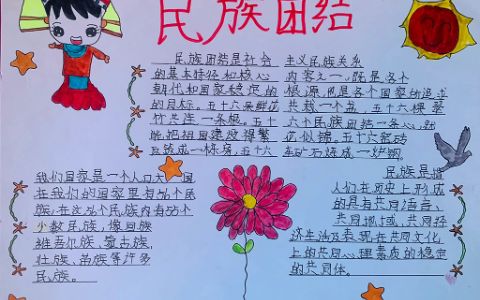 民族团结
民族团结是社会
的基本特征和核心
朝代和国家稳定的
的目标。五十六朵鲜花
竹共连一条根。五十
能把祖国建设得繁
五十六
主义民族关系
内容之一,既是各个
根源,也是各个国家动追求
共栽一个盆,五十六棵翠
六个民族团结一条心,就
花似锦,五十六窑砖
炼成一炉钢。
我们国家是一个人口大国
在我们的国家里有56个民
族,在这56个民族内有55个
少数民族,像回族
维吾尔族、蒙古族、
壮族、苗族等许多
民族。
民族是指
人们在历史上形成
的具有共同语言、
共同地域、共同经
济生活及表现在共同文化
上的共同心理素质的稳定
的共同体。